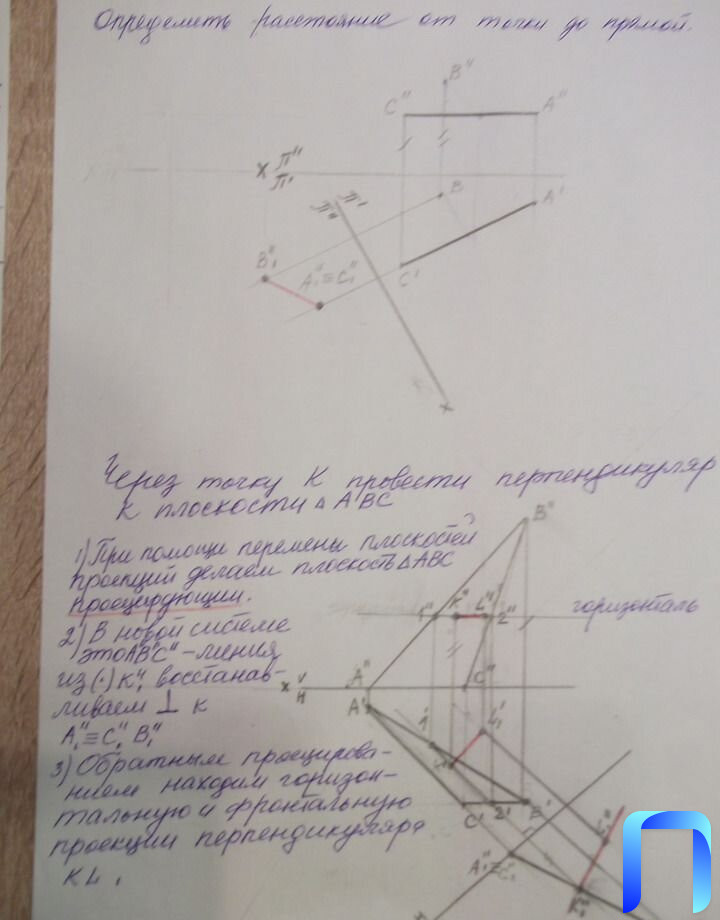 Определить расстояние от точки до прямой.
B"
C" A"
X П"
П'
B A'
П" П'
B"₁ A"₁≡C"₁ C'
X
Через точку К провести перпендикуляр
к плоскости △ABC
B"
1) При помощи перемены плоскостей
проекций делаем плоскость △ABC
проецирующии.
1" K" L" 2" горизонталь
2) В новой системе
это A"B"C" - линия
из (·) K"₁ восстанав-
ливаем ⊥ к
A"₁≡C"₁ B"₁
A" C"
X V
H
A' 1' L'
3) Обратным проецирова-
нием находим горизон-
тальную и фронтальную
проекции перпендикуляра
KL.
C' 2' B'
A"₁≡C"₁